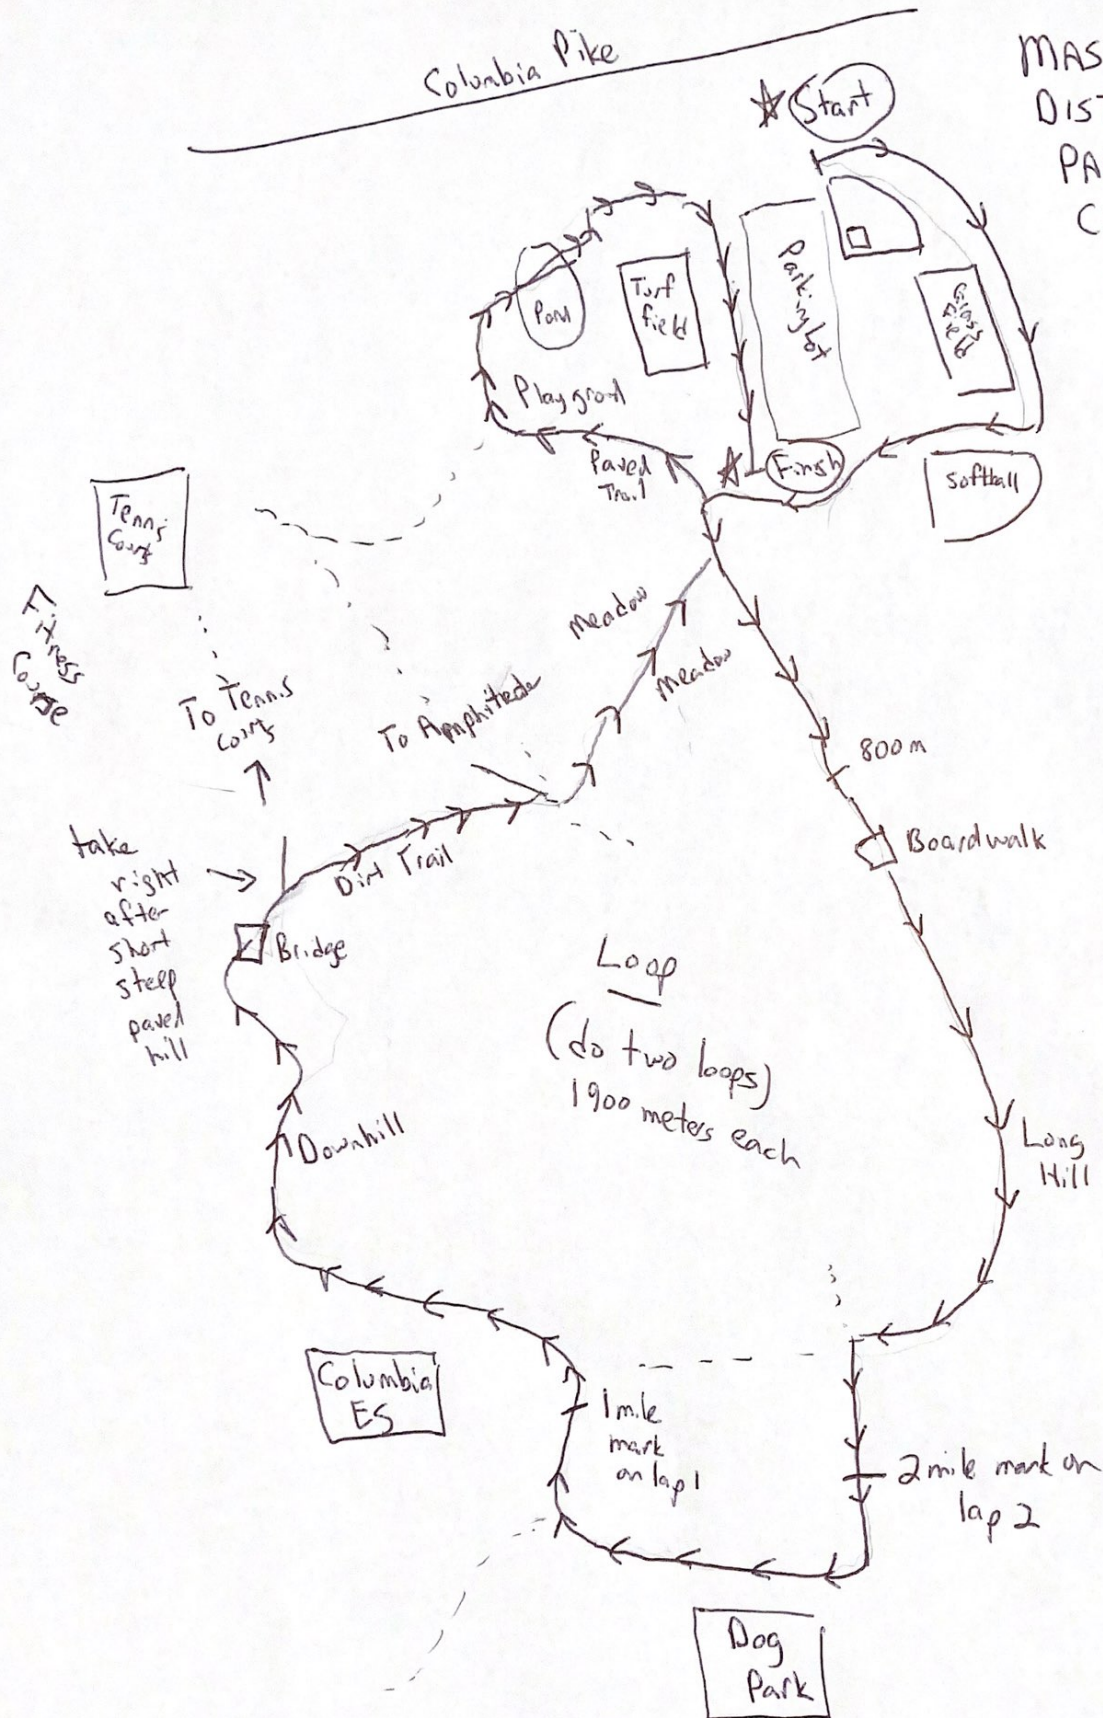 Columbia Pike
MAS
DIST
PA
C
Start
Parking Lot
Turf
field
Grass
Field
Playgrond
Paved
Trail
Finish
Softball
Tennis
Courts
Fitness
Course
To Tennis
Courts
To Amphiteate
meadow
meadow
800m
Boardwalk
take
right
after
short
steep
paved
hill
Dirt Trail
Bridge
Loop
(do two loops)
1900 meters each
Long
Hill
Downhill
Columbia
ES
1 mile
mark
on lap 1
2 mile mark on
lap 2
Dog
Park